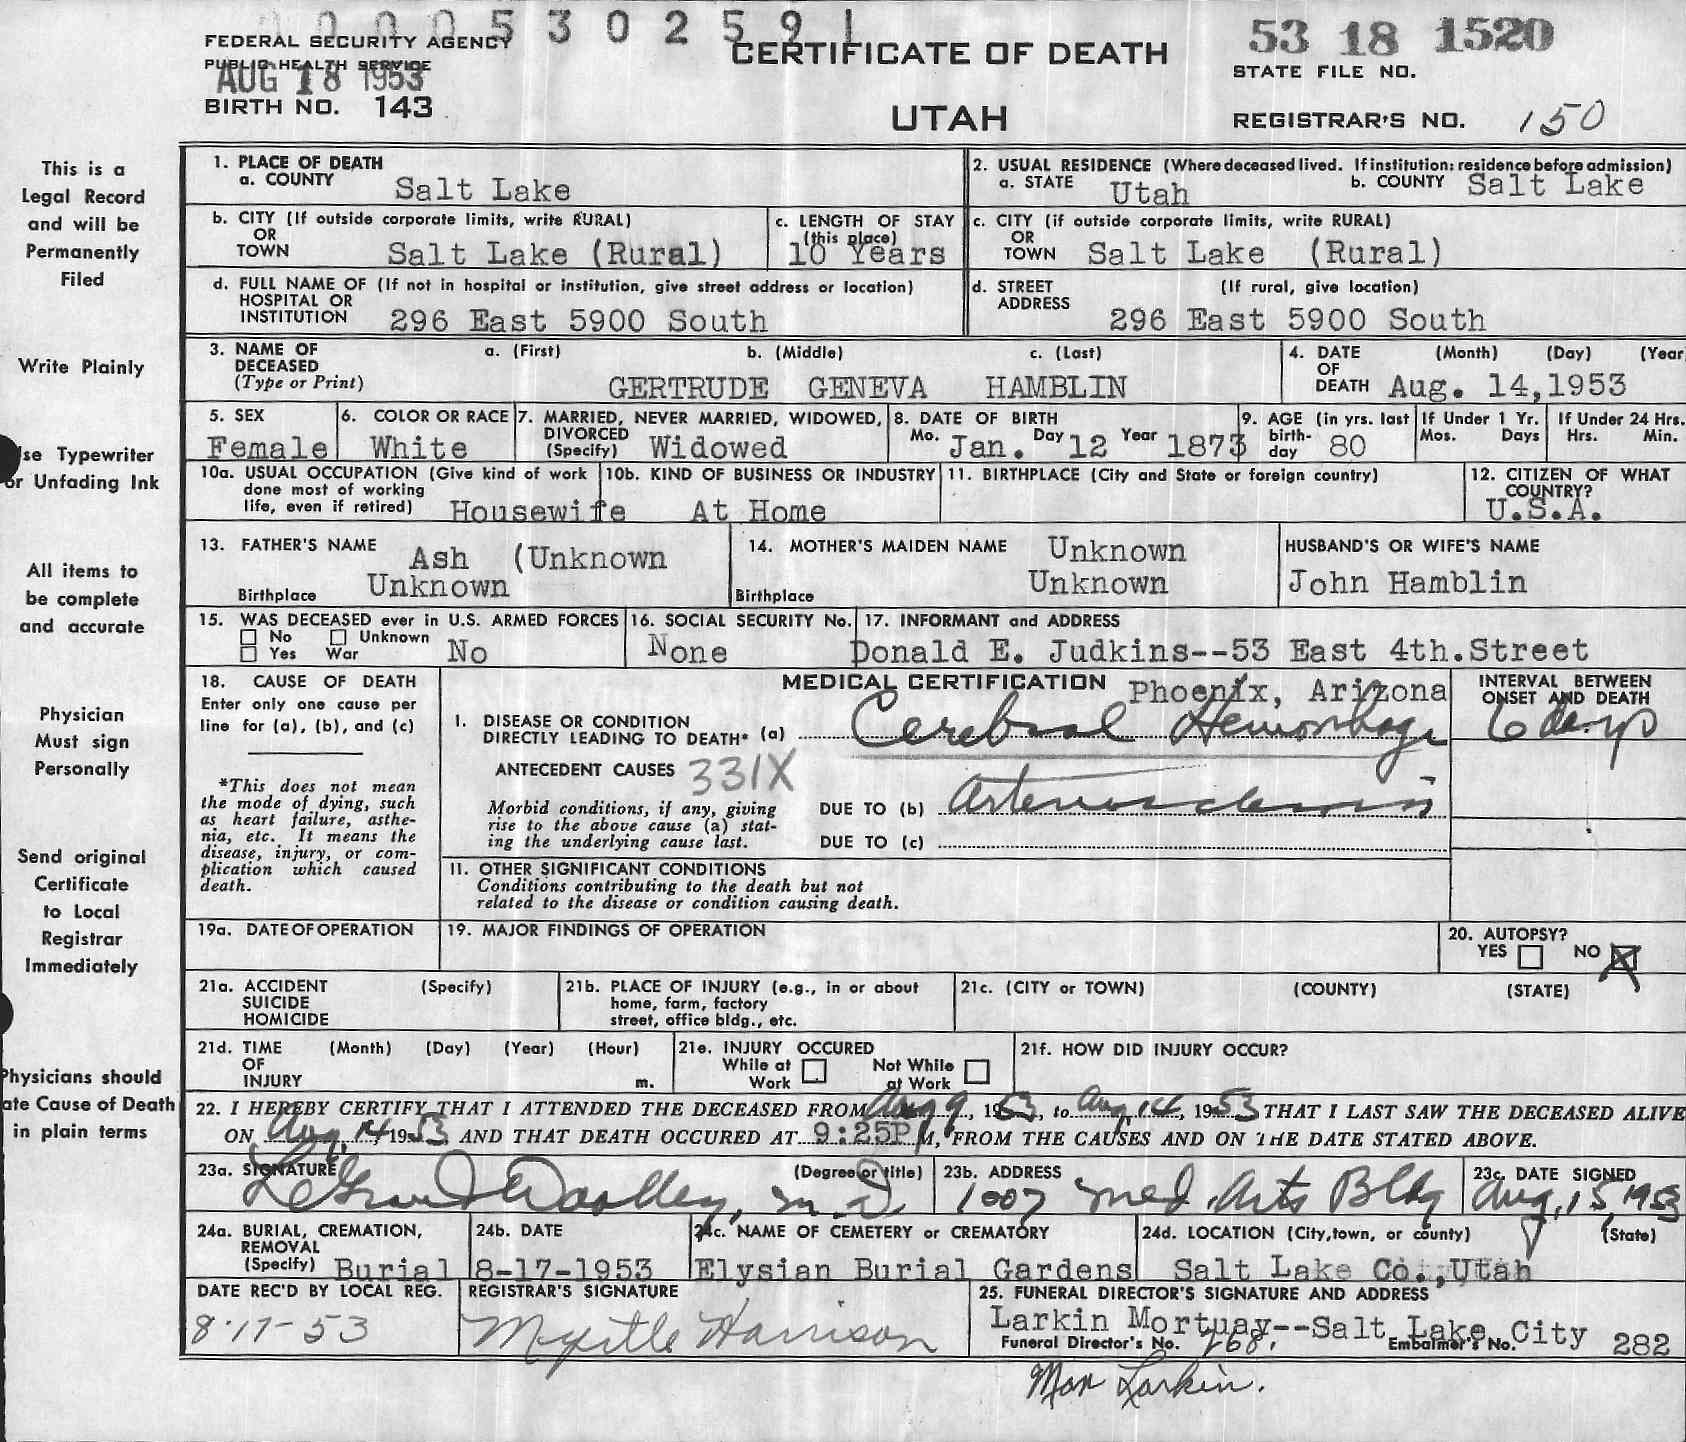 0000530259 1
FEDERAL SECURITY AGENCY
PUBLIC HEALTH SERVICE
AUG 18 1953
BIRTH NO. 143
CERTIFICATE OF DEATH
UTAH
53 18 1520
STATE FILE NO.
REGISTRAR'S NO. 150
This is a
Legal Record
and will be
Permanently
Filed
Write Plainly
se Typewriter
or Unfading Ink
All items to
be complete
and accurate
Physician
Must sign
Personally
Send original
Certificate
to Local
Registrar
Immediately
Physicians should
ate Cause of Death
in plain terms
1. PLACE OF DEATH
a. COUNTY Salt Lake
2. USUAL RESIDENCE (Where deceased lived. If institution: residence before admission)
a. STATE Utah b. COUNTY Salt Lake
b. CITY (If outside corporate limits, write RURAL)
OR
TOWN Salt Lake (Rural)
c. LENGTH OF STAY
(this place)
10 Years
c. CITY (if outside corporate limits, write RURAL)
OR
TOWN Salt Lake (Rural)
d. FULL NAME OF (If not in hospital or institution, give street address or location)
HOSPITAL OR
INSTITUTION 296 East 5900 South
d. STREET (If rural, give location)
ADDRESS
296 East 5900 South
3. NAME OF a. (First) b. (Middle) c. (Last)
DECEASED
(Type or Print) GERTRUDE GENEVA HAMBLIN
4. DATE (Month) (Day) (Year
OF
DEATH Aug. 14,1953
5. SEX
Female
6. COLOR OR RACE
White
7. MARRIED, NEVER MARRIED, WIDOWED,
DIVORCED
(Specify) Widowed
8. DATE OF BIRTH
Mo. Jan. Day 12 Year 1873
9. AGE (in yrs. last
birth-
day 80
If Under 1 Yr.
Mos. Days
If Under 24 Hrs.
Hrs. Min.
10a. USUAL OCCUPATION (Give kind of work
done most of working
life, even if retired) Housewife
10b. KIND OF BUSINESS OR INDUSTRY
At Home
11. BIRTHPLACE (City and State or foreign country)
12. CITIZEN OF WHAT
COUNTRY?
U.S.A.
13. FATHER'S NAME Ash (Unknown
Birthplace Unknown
14. MOTHER'S MAIDEN NAME Unknown
Birthplace Unknown
HUSBAND'S OR WIFE'S NAME
John Hamblin
15. WAS DECEASED ever in U.S. ARMED FORCES
No Unknown
Yes War No
16. SOCIAL SECURITY No.
None
17. INFORMANT and ADDRESS
Donald E. Judkins--53 East 4th.Street
Phoenix, Arizona
18. CAUSE OF DEATH
Enter only one cause per
line for (a), (b), and (c)
*This does not mean
the mode of dying, such
as heart failure, asthe-
nia, etc. It means the
disease, injury, or com-
plication which caused
death.
MEDICAL CERTIFICATION
INTERVAL BETWEEN
ONSET AND DEATH
I. DISEASE OR CONDITION
DIRECTLY LEADING TO DEATH* (a) Cerebral Hemorrhage 6 days
ANTECEDENT CAUSES 331X
Morbid conditions, if any, giving
rise to the above cause (a) stat-
ing the underlying cause last.
DUE TO (b) Arteriosclerosis
DUE TO (c)
II. OTHER SIGNIFICANT CONDITIONS
Conditions contributing to the death but not
related to the disease or condition causing death.
19a. DATE OF OPERATION
19. MAJOR FINDINGS OF OPERATION
20. AUTOPSY?
YES NO X
21a. ACCIDENT (Specify)
SUICIDE
HOMICIDE
21b. PLACE OF INJURY (e.g., in or about
home, farm, factory
street, office bldg., etc.
21c. (CITY or TOWN) (COUNTY) (STATE)
21d. TIME (Month) (Day) (Year) (Hour)
OF
INJURY m.
21e. INJURY OCCURED
While at Not While
Work at Work
21f. HOW DID INJURY OCCUR?
22. I HEREBY CERTIFY THAT I ATTENDED THE DECEASED FROM Aug 9, 1953, to Aug 14, 1953 THAT I LAST SAW THE DECEASED ALIVE
ON Aug 14, 1953 AND THAT DEATH OCCURED AT 9:25P M, FROM THE CAUSES AND ON THE DATE STATED ABOVE.
23a. SIGNATURE (Degree or title)
LeGrand Woolley, M.D.
23b. ADDRESS
1007 Med. Arts Bldg
23c. DATE SIGNED
Aug, 15, 1953
24a. BURIAL, CREMATION,
REMOVAL
(Specify) Burial
24b. DATE
8-17-1953
24c. NAME OF CEMETERY or CREMATORY
Elysian Burial Gardens
24d. LOCATION (City,town, or county) (State)
Salt Lake Co.,Utah
DATE REC'D BY LOCAL REG.
8-17-53
REGISTRAR'S SIGNATURE
Myrtle Harrison
25. FUNERAL DIRECTOR'S SIGNATURE AND ADDRESS
Larkin Mortuay--Salt Lake City
Funeral Director's No. 268. Embalmer's No. 282
Max Larkin.